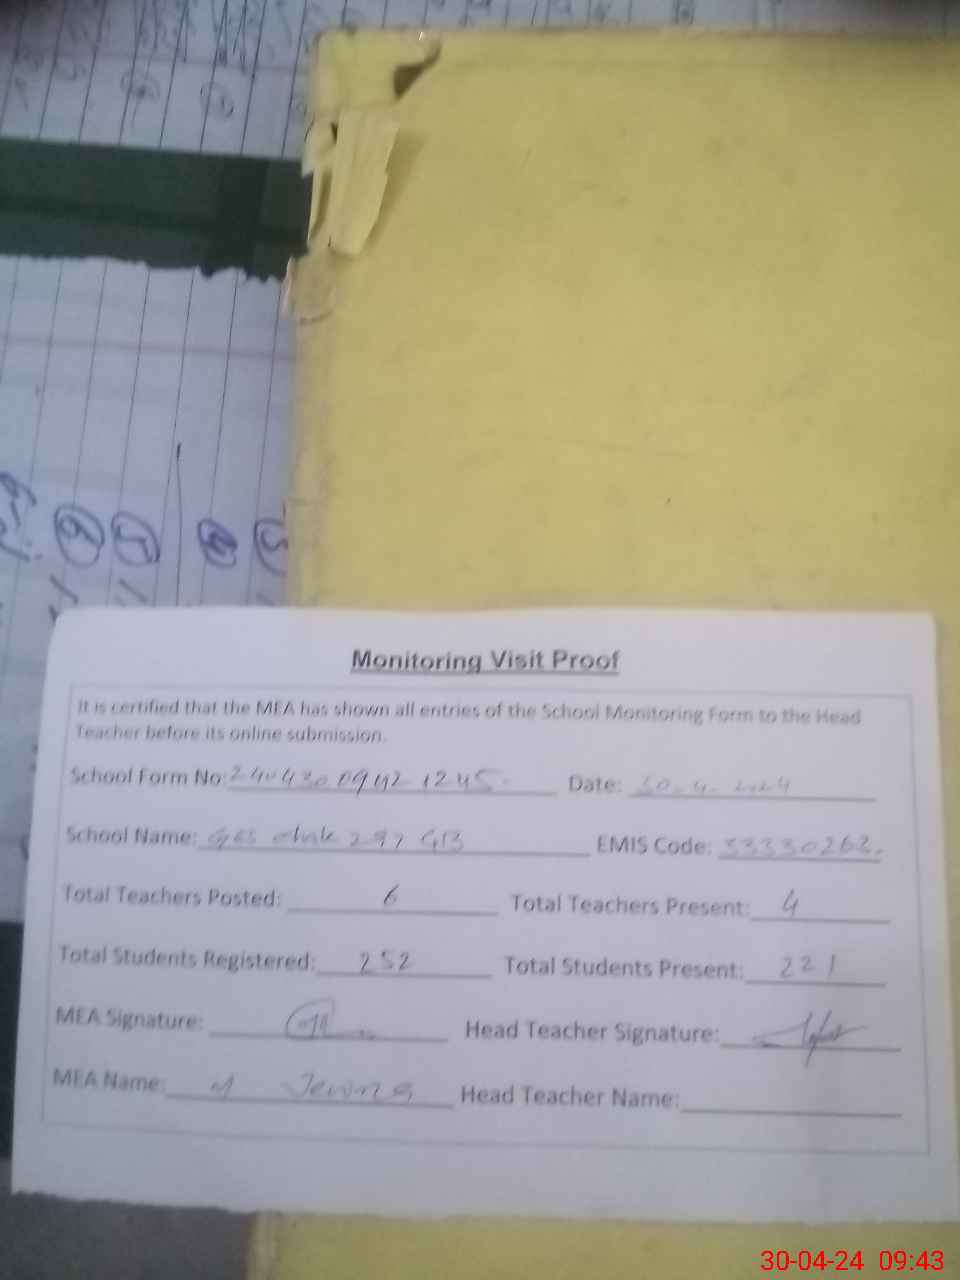 Monitoring Visit Proof
It is certified that the MEA has shown all entries of the School Monitoring Form to the Head
Teacher before its online submission.
School Form No: 2404300942 1245. Date: 30-4-2024
School Name: GES chak 297 GB EMIS Code: 33330262.
Total Teachers Posted: 6 Total Teachers Present: 4
Total Students Registered: 252 Total Students Present: 221
MEA Signature: Head Teacher Signature:
MEA Name: M Head Teacher Name:
30-04-24 09:43